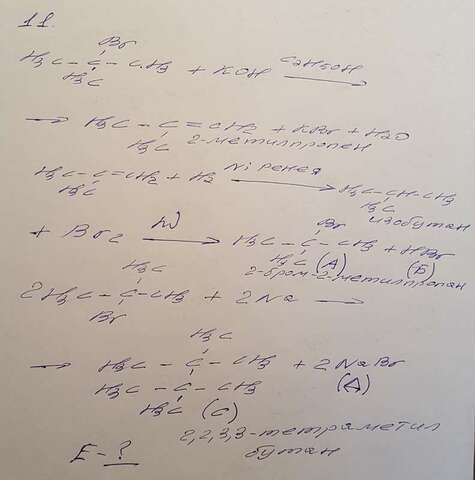 11.
Br
H3C - C - CH3 + KOH C2H5OH →
H3C
→ H3C - C = CH2 + KBr + H2O
H3C 2-метилпропен
H3C - C = CH2 + H2 Ni ренея → H3C - CH - CH3
H3C H3C
изобутан
+ Br2 hν → H3C - C - CH3 + HBr
Br
H3C (А) (Б)
2-бром-2-метилпропан
H3C
2H3C - C - CH3 + 2Na →
Br
H3C
→ H3C - C - CH3 + 2NaBr
H3C - C - CH3 (Д)
H3C (С)
2,2,3,3-тетраметил
бутан
Е - ?